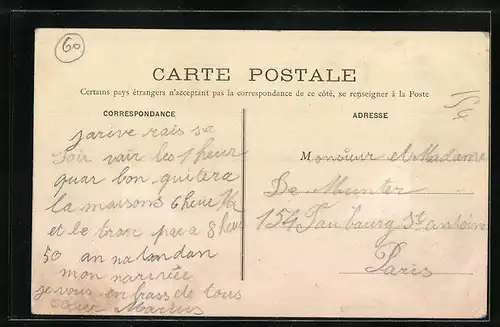 60
CARTE POSTALE
Certains pays étrangers n'acceptant pas la correspondance de ce côté, se renseigner à la Poste
CORRESPONDANCE
jarive rais se
soir vair les 9 heur
quar bon quitera
la maisons 6 heur ½
et le bran par a 8 heur
50 an natandan
mon narivée
je vous enbrass de tous
Marius
ADRESSE
Monsieur et Madame
De Munter
154 Faubourg St antoine
Paris